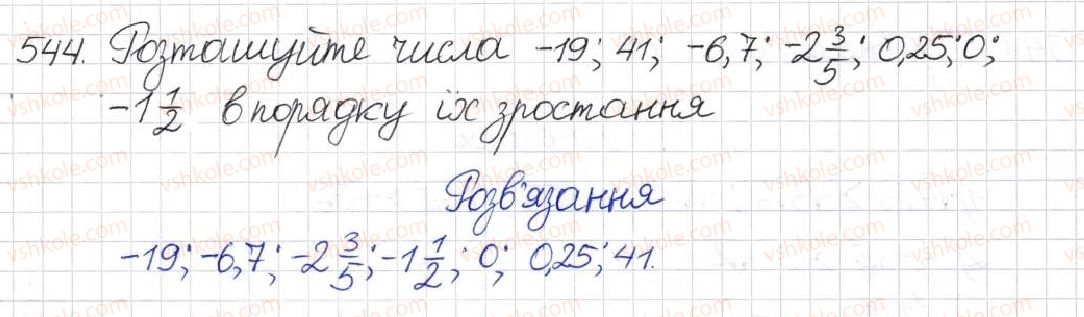 544. Розташуйте числа -19; 41; -6,7; -2 3/5; 0,25; 0;
-1 1/2 в порядку їх зростання
Розв'язання
-19; -6,7; -2 3/5; -1 1/2; 0; 0,25; 41.